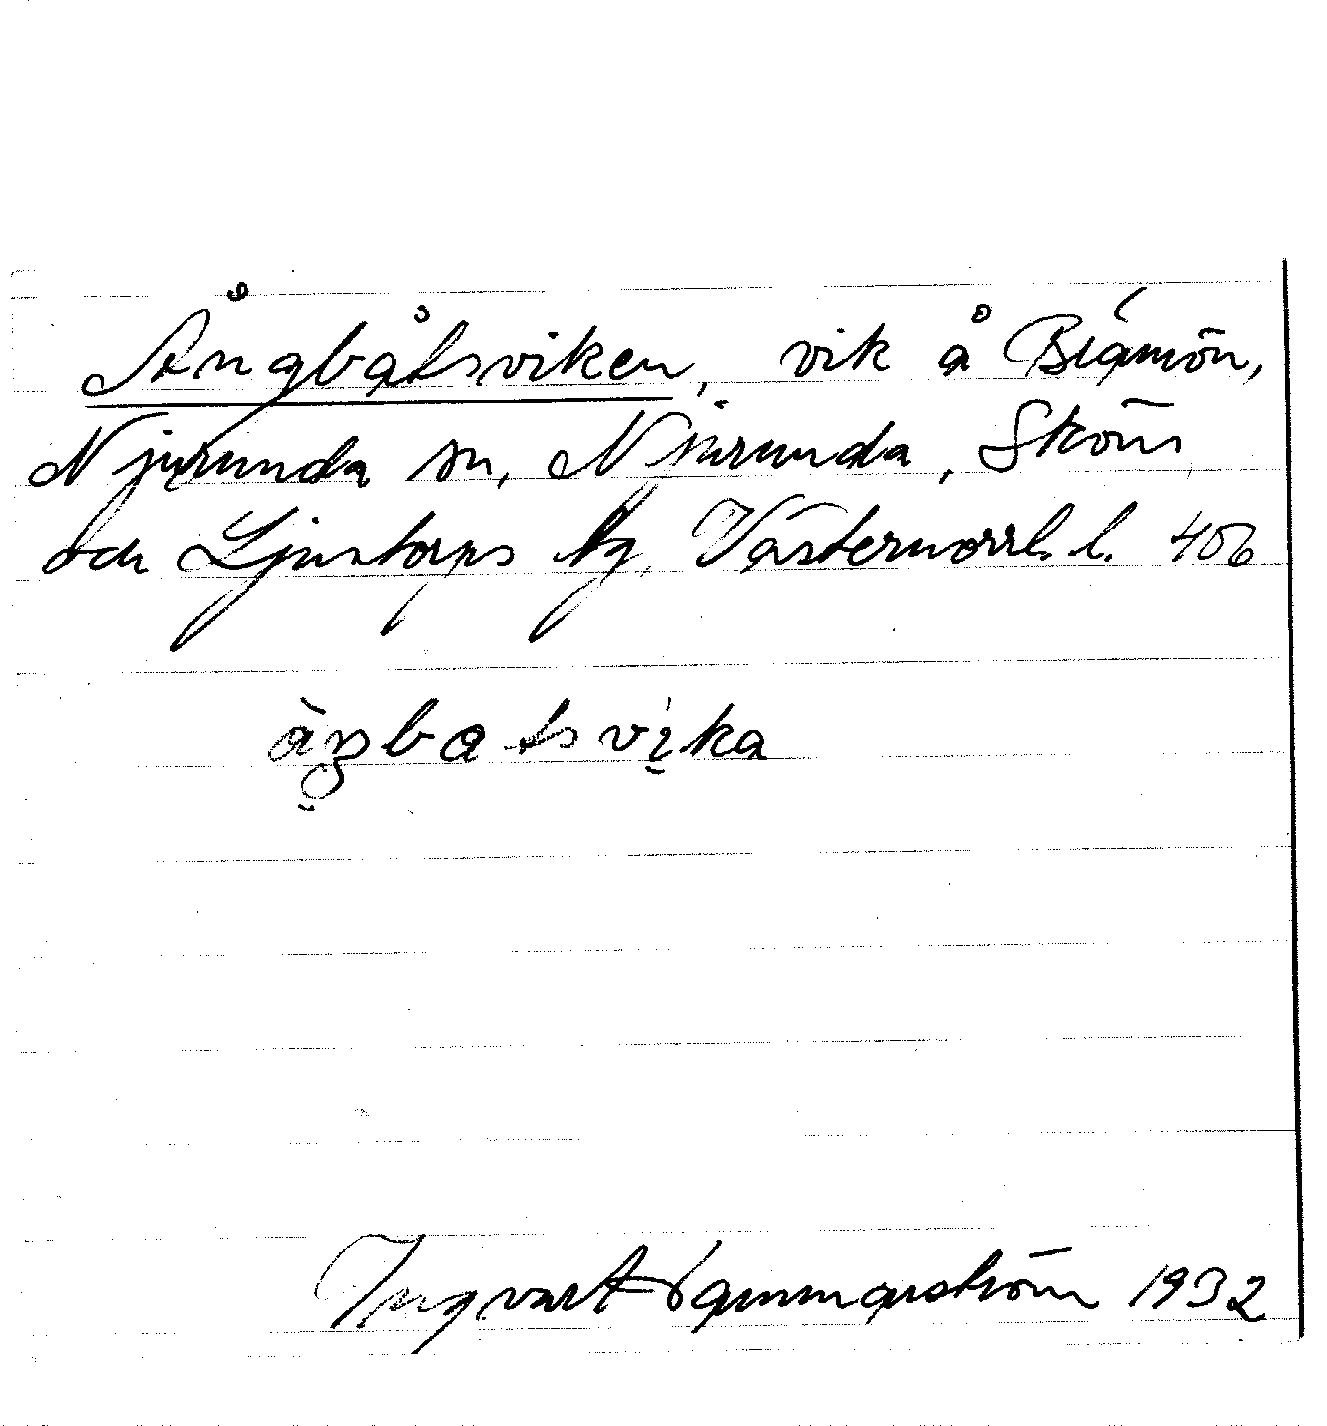 Ångbåtsviken, vik å Brämön,
Njurunda sn, Njurunda, Sköns
och Ljustorps tg, Västernorrl. l. 406
àŋbatsvika
Ingvart Hammarström 1932